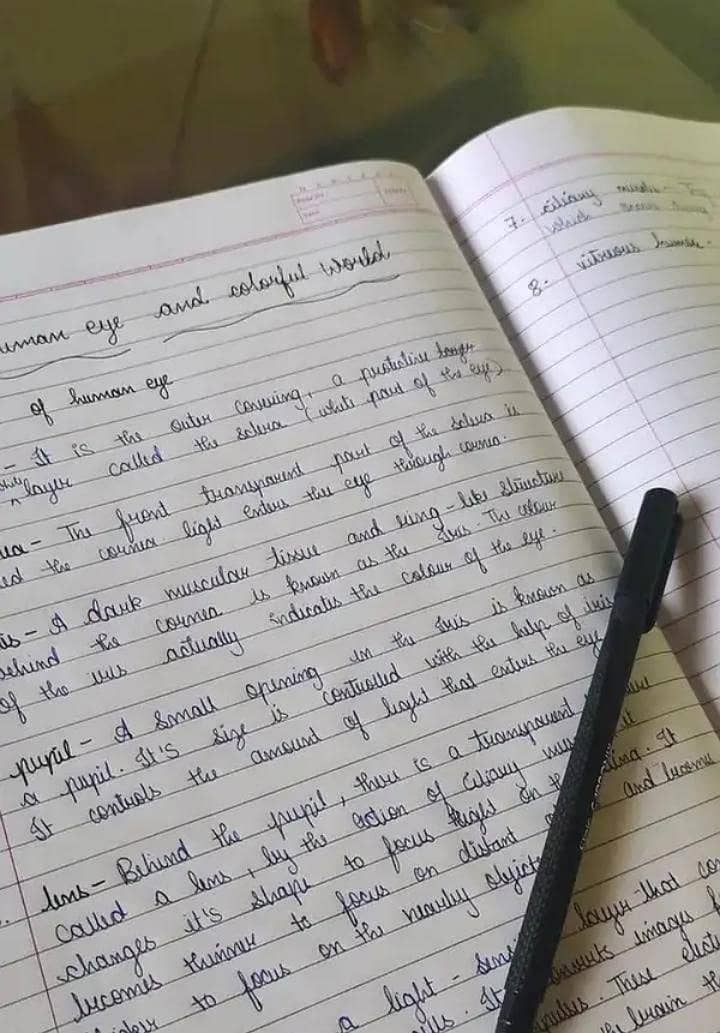 uman eye and colorful world
of human eye
- It is the outer covering, a protective tough
layer called the sclera (white part of the eye)
- The front transparent part of the sclera is
the cornea light enters the eye through cornea.
is - A dark muscular tissue and ring-like structure
behind the cornea is known as the Iris. The colour
of the iris actually indicates the colour of the eye.
pupil - A small opening in the Iris is known as
a pupil. It's size is controlled with the help of iris
It controls the amount of light that enters the eye
lens - Behind the pupil, there is a transparent
called a lens, by the action of Ciliary
changes it's shape to focus light on It
becomes thinner to focus on distant and become
to focus on the nearby object
a light - layer that
It converts images
These
brain
7. ciliary muscle -
which
8. vitreous